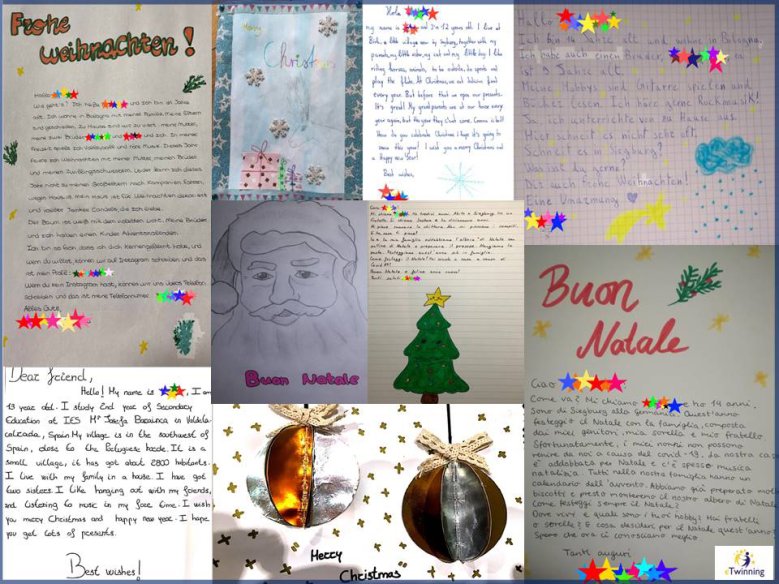 Frohe
weihnachten!
Hallo
wie geht's? Ich heiße und ich bin 14 Jahre
alt. Ich wohne in Bologna mit meiner Familie, meine Eltern
sind geschieden. Zu Hause sind wir zu viert: meine Mutter,
meine zwei Brüder und ich. In meiner
Freizeit spiele ich Volleyball und höre Musik. Dieses Jahr
feiere ich Weihnachten mit meiner Mutter, meinen Brüder
und meinen
Jahr nicht zu meinen Großeltern nach Kampanien fahren,
wegen Haus. In mein Haus ist für Weihnachten dekoriert
und
Der Baum ist weiß mit dem
und ich haben einen Kinder Adventskalender.
Ich bin so froh, dass ich dich kennengelernt habe, und
wenn du willst, können wir auf Instagram schreiben und das
ist mein Profil:
Wenn du kein Instagram hast, können wir uns übers Telefon
schreiben und das ist meine Telefonnummer:
Alles Gute,
Merry
Christmas
Hola
my name is and I'm 12 years old. I live at
a little village near by Siegburg, together with my
parents, my little sister, my cat and my little dog. I like
riding horses, animals, to be outside, do sports and
play the flute. At Christmas, we eat
every year. But before that we open our presents.
It's great! My grandparents are at our house every
year again, but this year they can't come. Corona is bad!
How do you celebrate Christmas? I hope it's going to
snow this year! I wish you a merry Christmas and
a happy New Year!
Best wishes,
Hallo
Ich bin 14 Jahre alt und wohne in Bologna.
Ich habe auch einen Bruder,
ist 9 Jahre alt.
Meine Hobbys sind Gitarre spielen und
Bücher lesen. Ich höre gerne Rockmusik!
unterrichte von zu Hause aus.
schneit es nicht sehr oft.
Schneit es in Siegburg?
Was isst du gerne?
Dir auch Frohe Weihnachten!
Eine Umarmung
Buon Natale
Ciao
Mi chiamo ho tredici anni. Abito a Siegburg. Ho un
fratello. Si chiama Joshua e ha diciassette anni.
A te cosa ti piace?
Io e la mia famiglia addobbiamo l'albero di Natale con
palline di Natale e prepariamo il presepe. Mangiamo la
pasta. Festeggiamo quest'anno solo in famiglia.
Come festeggi il Natale? Fai scuola a casa a causa di
Covid 19?
Buon Natale e felice anno nuovo!
Tanti saluti
Dear friend,
Hello! My name is , I am
13 year old. I study 2nd year of Secondary
Education at IES Mª Josefa Baraínca in Valdela-
calzada, Spain. My village is in the southwest of
Spain, close to the Portugese border. It is a
small village, it has got about 2800 habitants.
I live with my family in a house. I have got
two sisters. I like hanging out with my friends,
and listening to music in my free time. I wish
you merry Christmas and happy new year. I hope
you get lots of presents.
Best wishes!
Merry
Christmas
Buon
Natale
Ciao
Come va? Mi chiamo e ho 14 anni.
Sono di Siegburg alla Germania. Quest'anno
festeggio il Natale con la famiglia, composta
dai miei genitori, mia sorella e mio fratello.
Sfortunatamente, i miei nonni non possono
venire da noi a causa del covid-19. La nostra casa
è addobbata per Natale e c'è spesso musica
natalizia. Tutti nella nostra famiglia hanno un
calendario dell'avvento. Abbiamo già preparato molti
biscotti e presto monteremo il nostro albero di Natale.
Come festeggi sempre il Natale?
Dove vivi e quali sono i tuoi hobby? Hai fratelli
o sorelle? E cosa desideri per il Natale quest'anno?
Spero che ora ci conosciamo meglio.
Tanti auguri
eTwinning